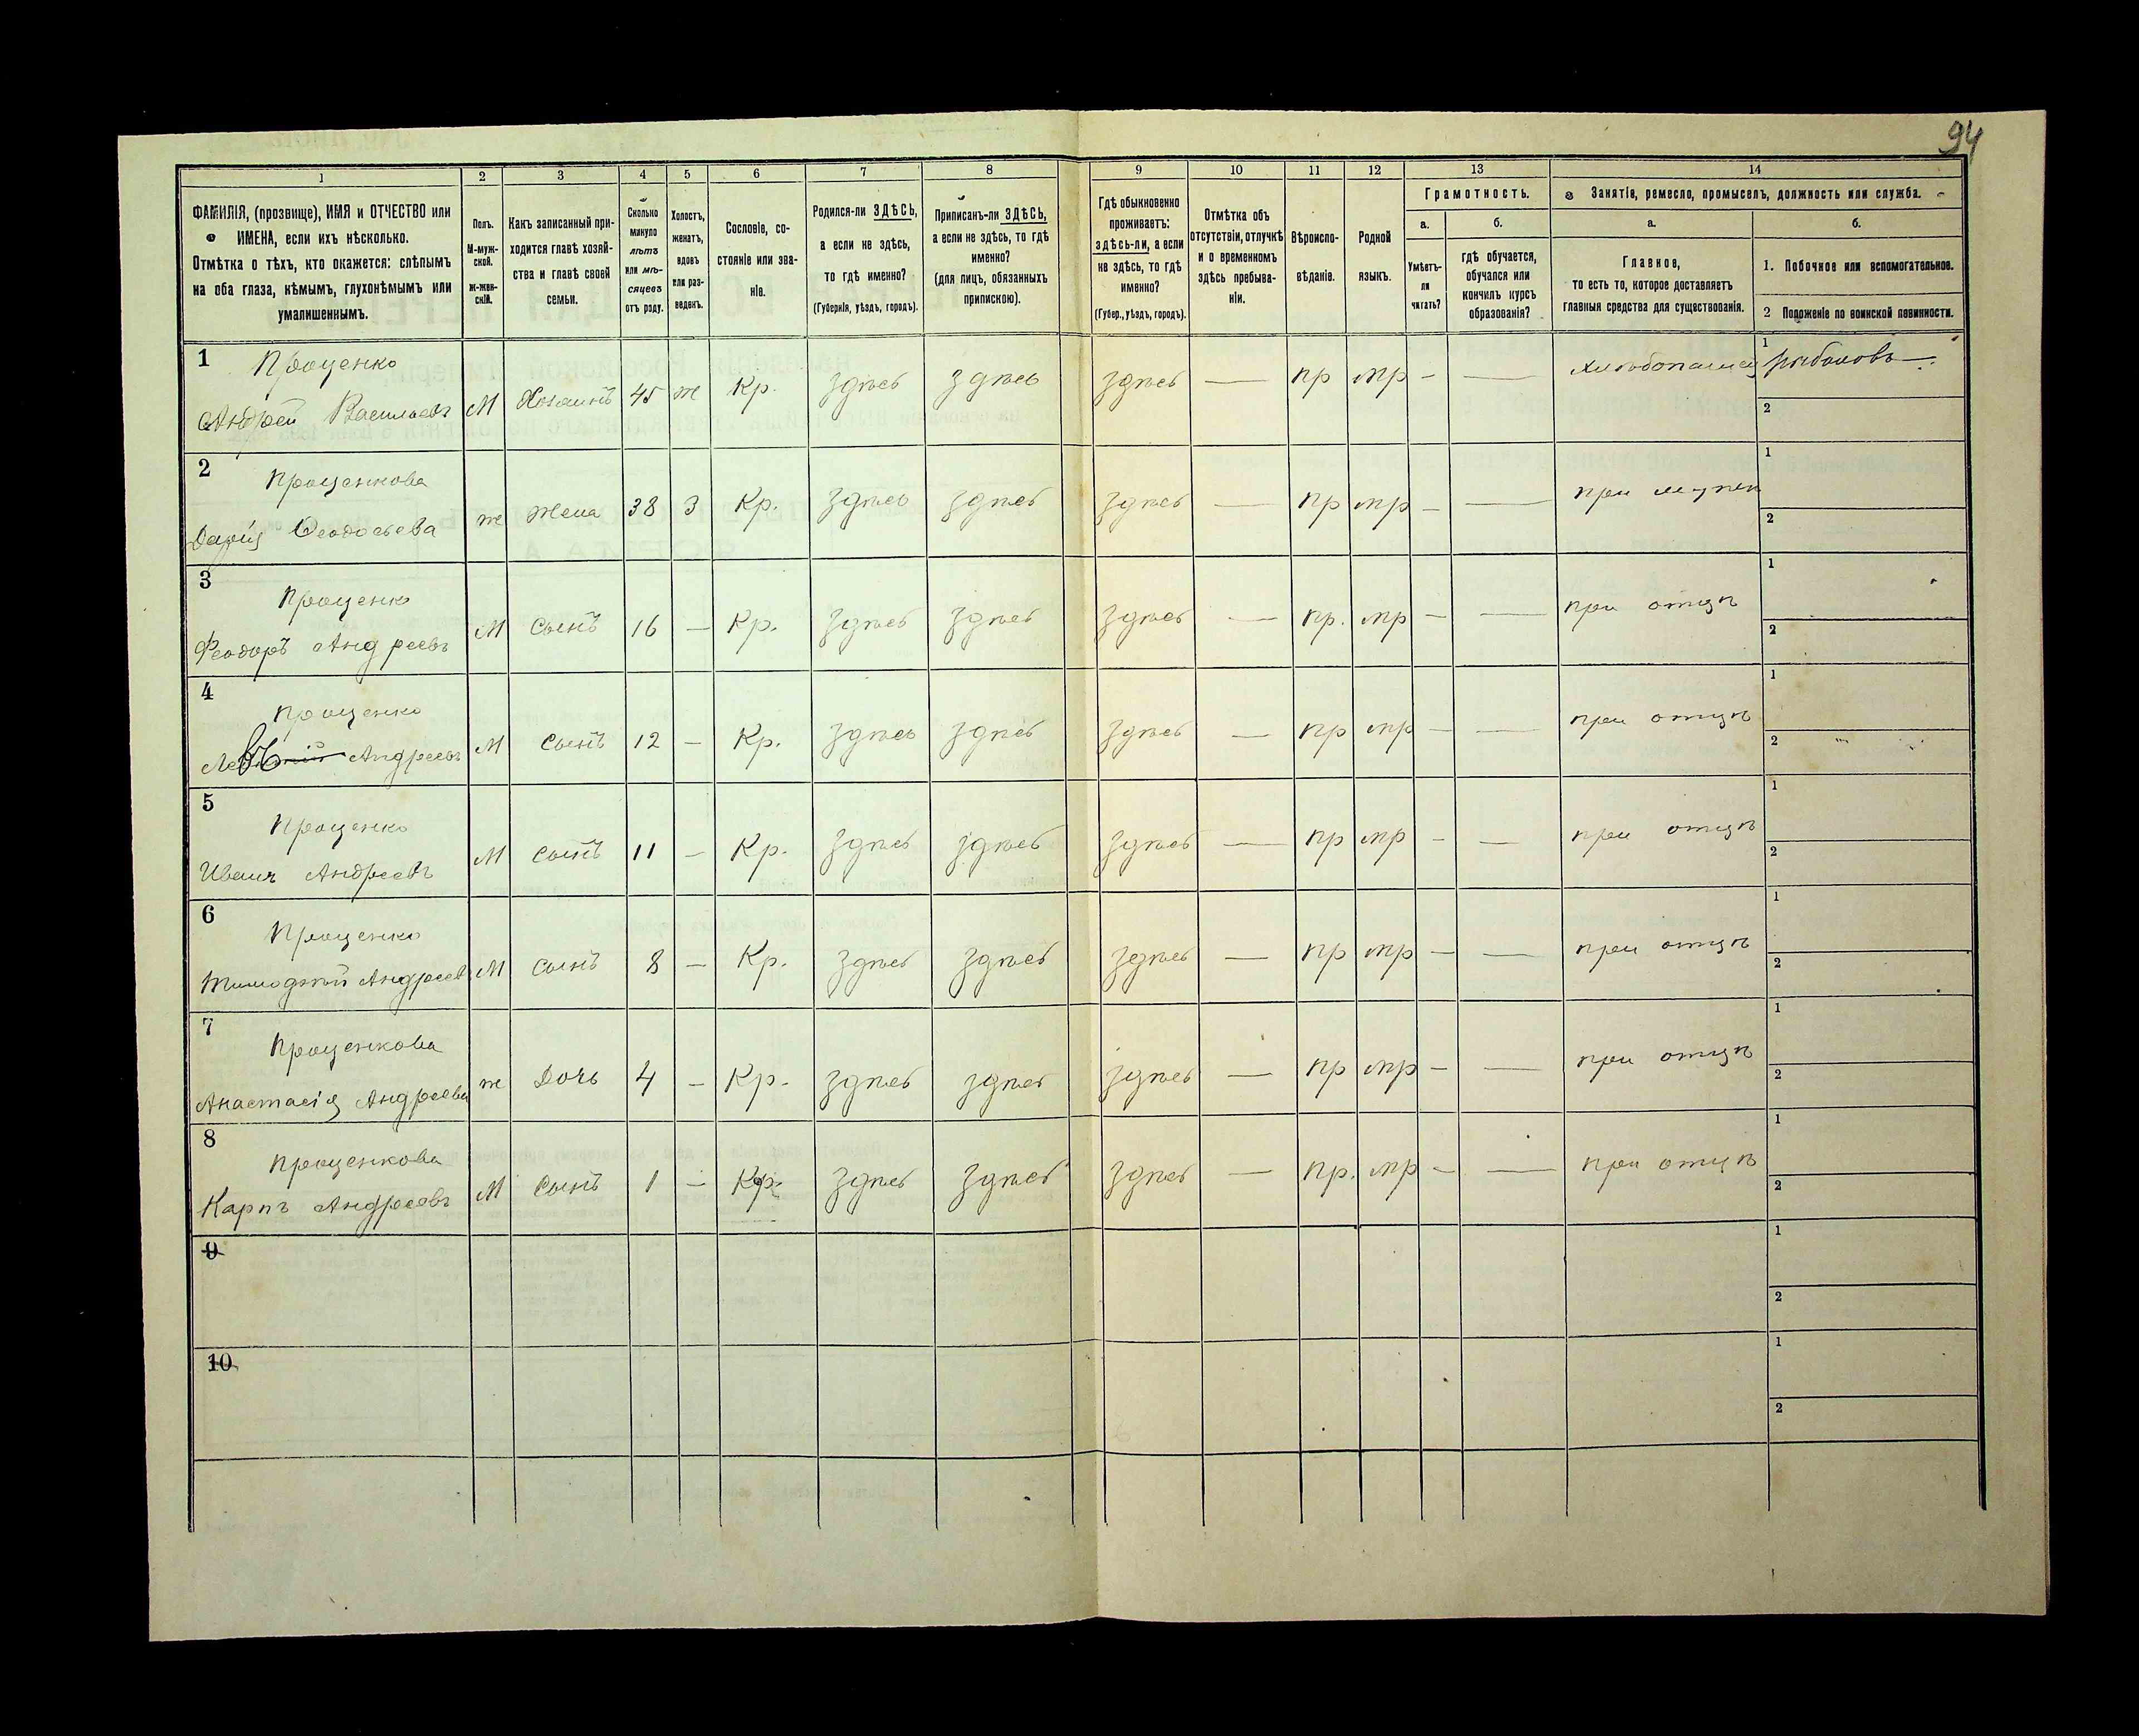 94
1 2 3 4 5 6 7 8 9 10 11 12 13 14
ФАМИЛІЯ, (прозвище), ИМЯ и ОТЧЕСТВО или
ИМЕНА, если ихъ нѣсколько.
Отмѣтка о тѣхъ, кто окажется: слѣпымъ
на оба глаза, нѣмымъ, глухонѣмымъ или
умалишеннымъ.
Полъ.
М-муж-
ской.
Ж-жен-
скій.
Какъ записанный при-
ходится главѣ хозяй-
ства и главѣ своей
семьи.
Сколько
минуло
лѣтъ
или мѣ-
сяцевъ
отъ роду.
Холостъ,
женатъ,
вдовъ
или раз-
веденъ.
Сословіе, со-
стояніе или зва-
ніе.
Родился-ли ЗДѢСЬ,
а если не здѣсь,
то гдѣ именно?
(Губернія, уѣздъ, городъ).
Приписанъ-ли ЗДѢСЬ,
а если не здѣсь, то гдѣ
именно?
(для лицъ, обязанныхъ
припискою).
Гдѣ обыкновенно
проживаетъ:
здѣсь-ли, а если
не здѣсь, то гдѣ
именно?
(Губер., уѣздъ, городъ).
Отмѣтка объ
отсутствіи, отлучкѣ
и о временномъ
здѣсь пребыва-
ніи.
Вѣроиспо-
вѣданіе.
Родной
языкъ.
Грамотность.
а.
Умѣетъ-
ли
читать?
б.
гдѣ обучается,
обучался или
кончилъ курсъ
образованія?
Занятія, ремесло, промыселъ, должность или служба.
а.
Главное,
то есть то, которое доставляетъ
главныя средства для существованія.
б.
1. Побочное или вспомогательное.
2 Положеніе по воинской повинности.
1 Проценко
Андрей Васильевъ М Хозяинъ 45 ж Кр. здѣсь здѣсь здѣсь — пр мр — — 1 рыболовъ
2
2 Проценкова
Дарія Ѳеодосьева ж жена 38 З Кр. здѣсь здѣсь здѣсь — пр мр — — при мужѣ 1
2
3 Проценко
Феодоръ Андреевъ М Сынъ 16 — Кр. здѣсь здѣсь здѣсь — пр. мр — — при отцѣ 1
2
4 Проценко
Андреевъ М Сынъ 12 — Кр. здѣсь здѣсь здѣсь — пр мр — — при отцѣ 1
2
5 Проценко
Иванъ Андреевъ М сынъ 11 — Кр. здѣсь здѣсь здѣсь — пр мр — — при отцѣ 1
2
6 Проценко
Тимофѣй Андреевъ М сынъ 8 — Кр. здѣсь здѣсь здѣсь — пр мр — — при отцѣ 1
2
7 Проценкова
Анастасія Андреева ж Дочь 4 — Кр. здѣсь здѣсь здѣсь — пр мр — — при отцѣ 1
2
8 Проценкова
Карпъ Андреевъ М Сынъ 1 — Кр. здѣсь здѣсь здѣсь — пр. мр — — при отцѣ 1
2
9 1
2
10 1
2